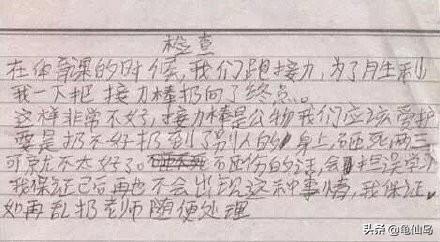 检查
在体育课的时候,我们跑接力,为了月生利
我一下把接力棒扔向了终点。
这样非常不好,接力棒是公物我们应该爱护
要是扔不好扔到了别人的身上,砸死两三
可就不太好了。砸伤的话会担误学习
我保证已后再也不会出现这种事情,我保证
如再乱扔老师随便处理
头条 @龟仙岛